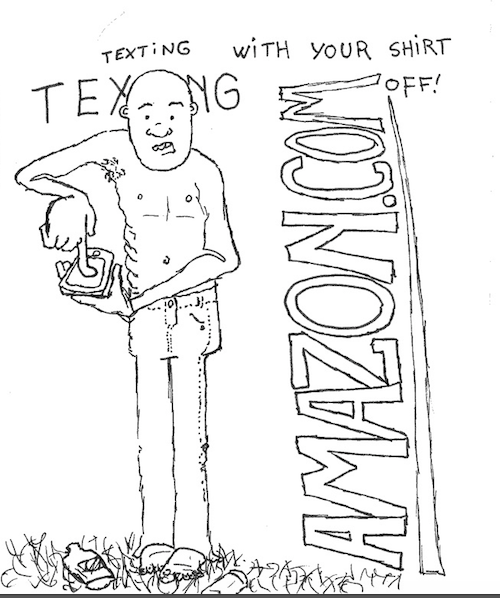 TEXTING WITH YOUR SHIRT
OFF!
TEX NG
AMAZON.COM